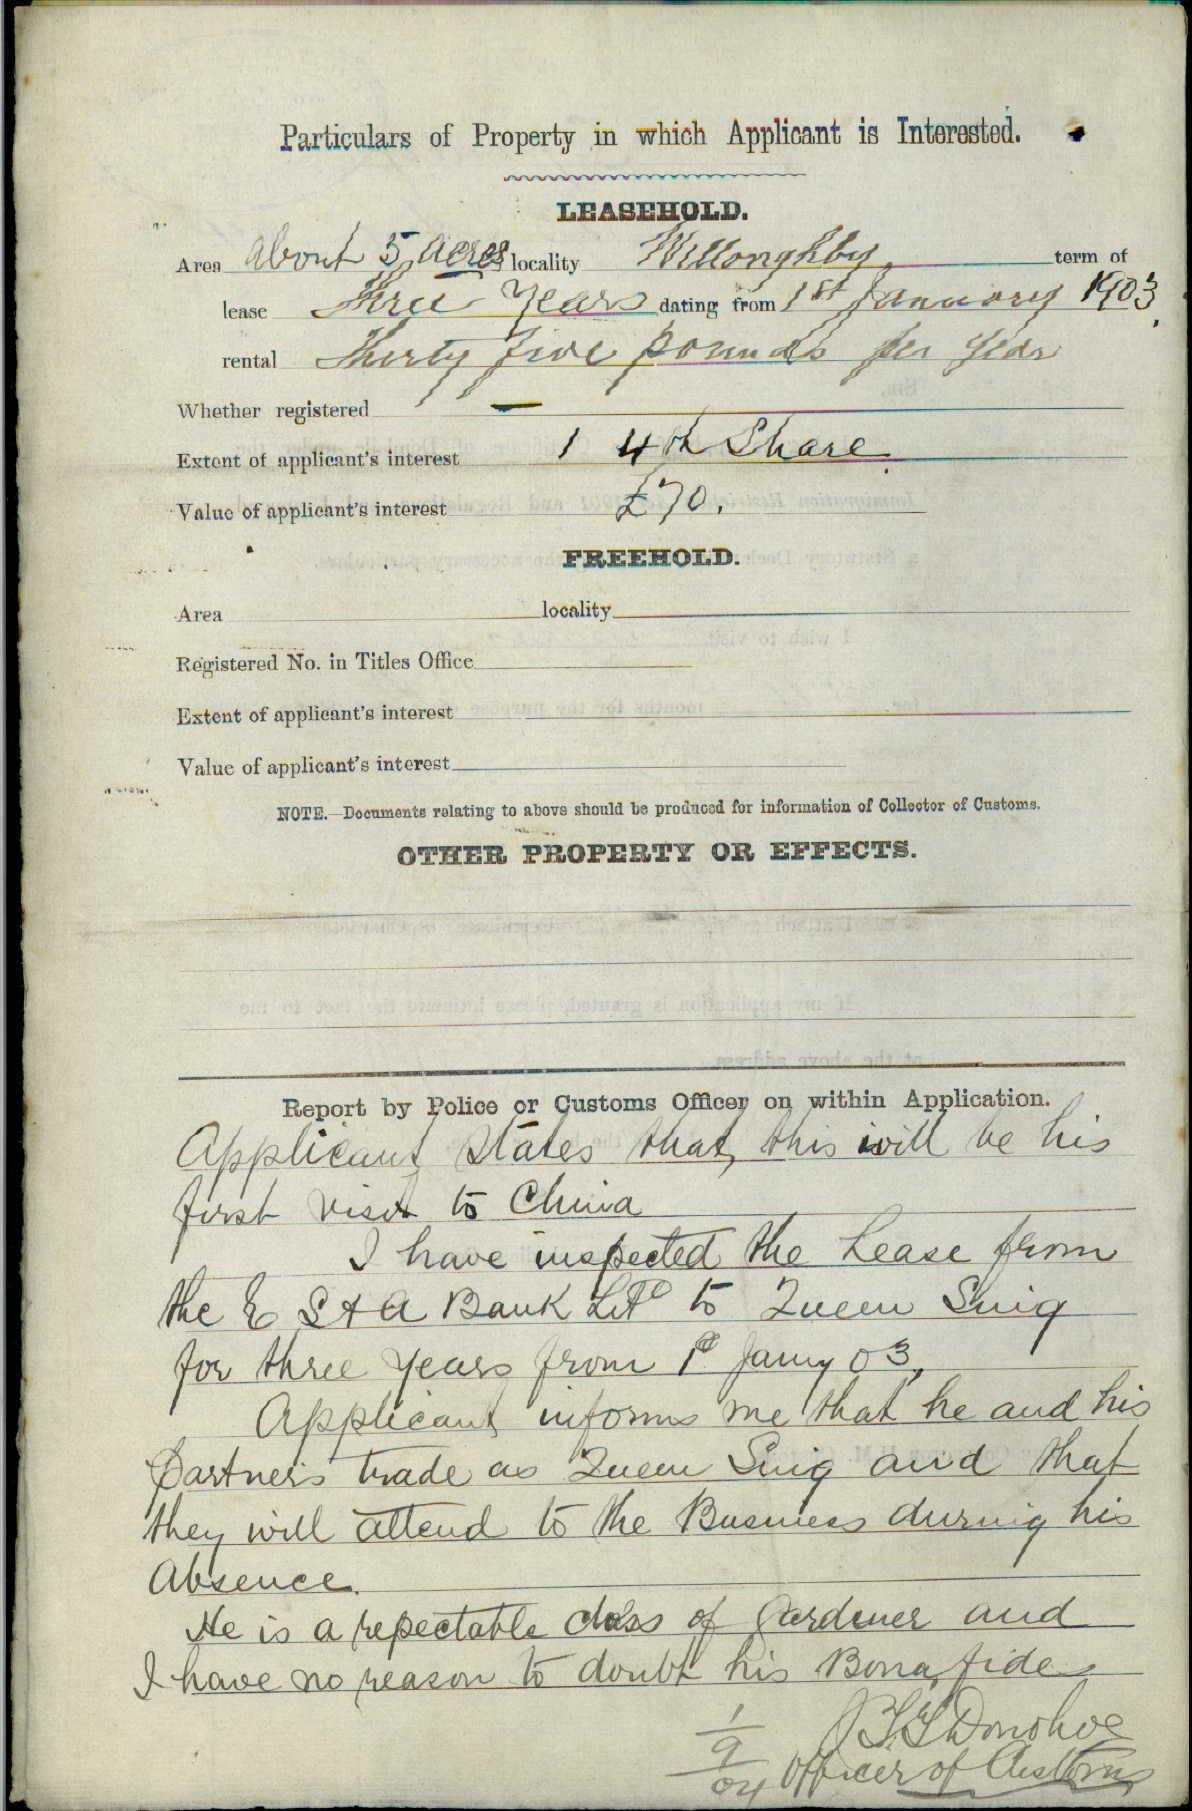 Particulars of Property in which Applicant is Interested.
LEASEHOLD.
Area about 5 acres locality Willoughby, term of
lease Three Years dating from 1st January 1903.
rental Thirty five pounds per year
Whether registered —
Extent of applicant's interest 1 4th Share
Value of applicant's interest £70.
FREEHOLD.
Area locality
Registered No. in Titles Office
Extent of applicant's interest
Value of applicant's interest
NOTE.—Documents relating to above should be produced for information of Collector of Customs.
OTHER PROPERTY OR EFFECTS.
Report by Police or Customs Officer on within Application.
Applicant states that, this will be his
first visit to China
I have inspected the Lease from
the E S & A Bank Ltd to Queen Sing
for three years from 1st Jany 03,
Applicant informs me that he and his
Partners trade as Queen Sing and that
they will attend to the Business during his
Absence.
He is a repectable class of Gardener and
I have no reason to doubt his Bona fides
Donohoe
1/9/04 Officer of Customs